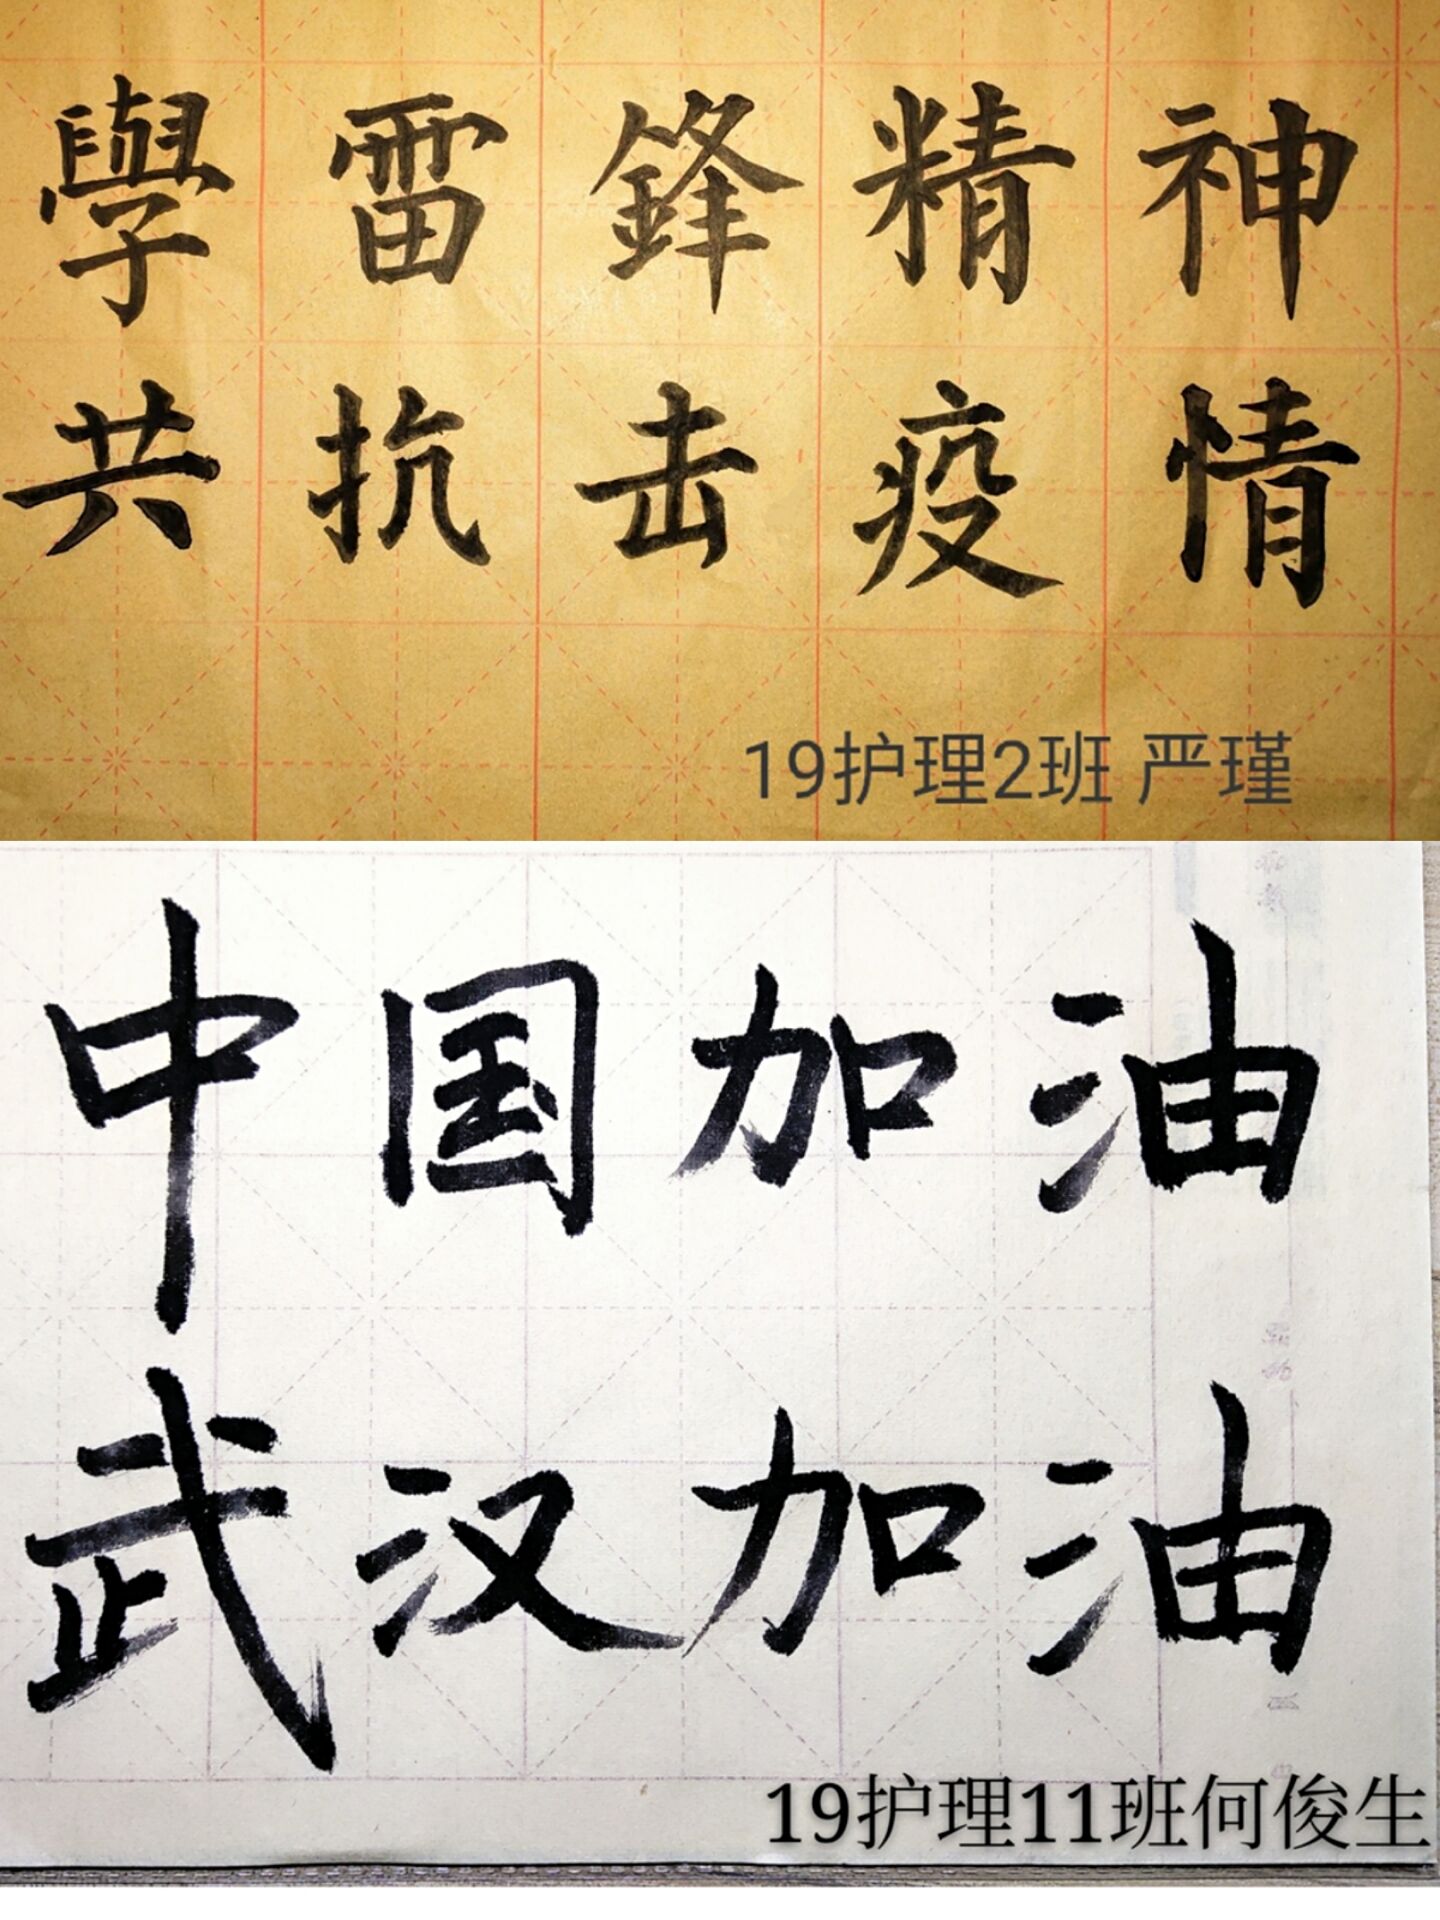 學雷鋒精神
共抗击疫情
19护理2班 严瑾
中国加油
武汉加油
19护理11班何俊生